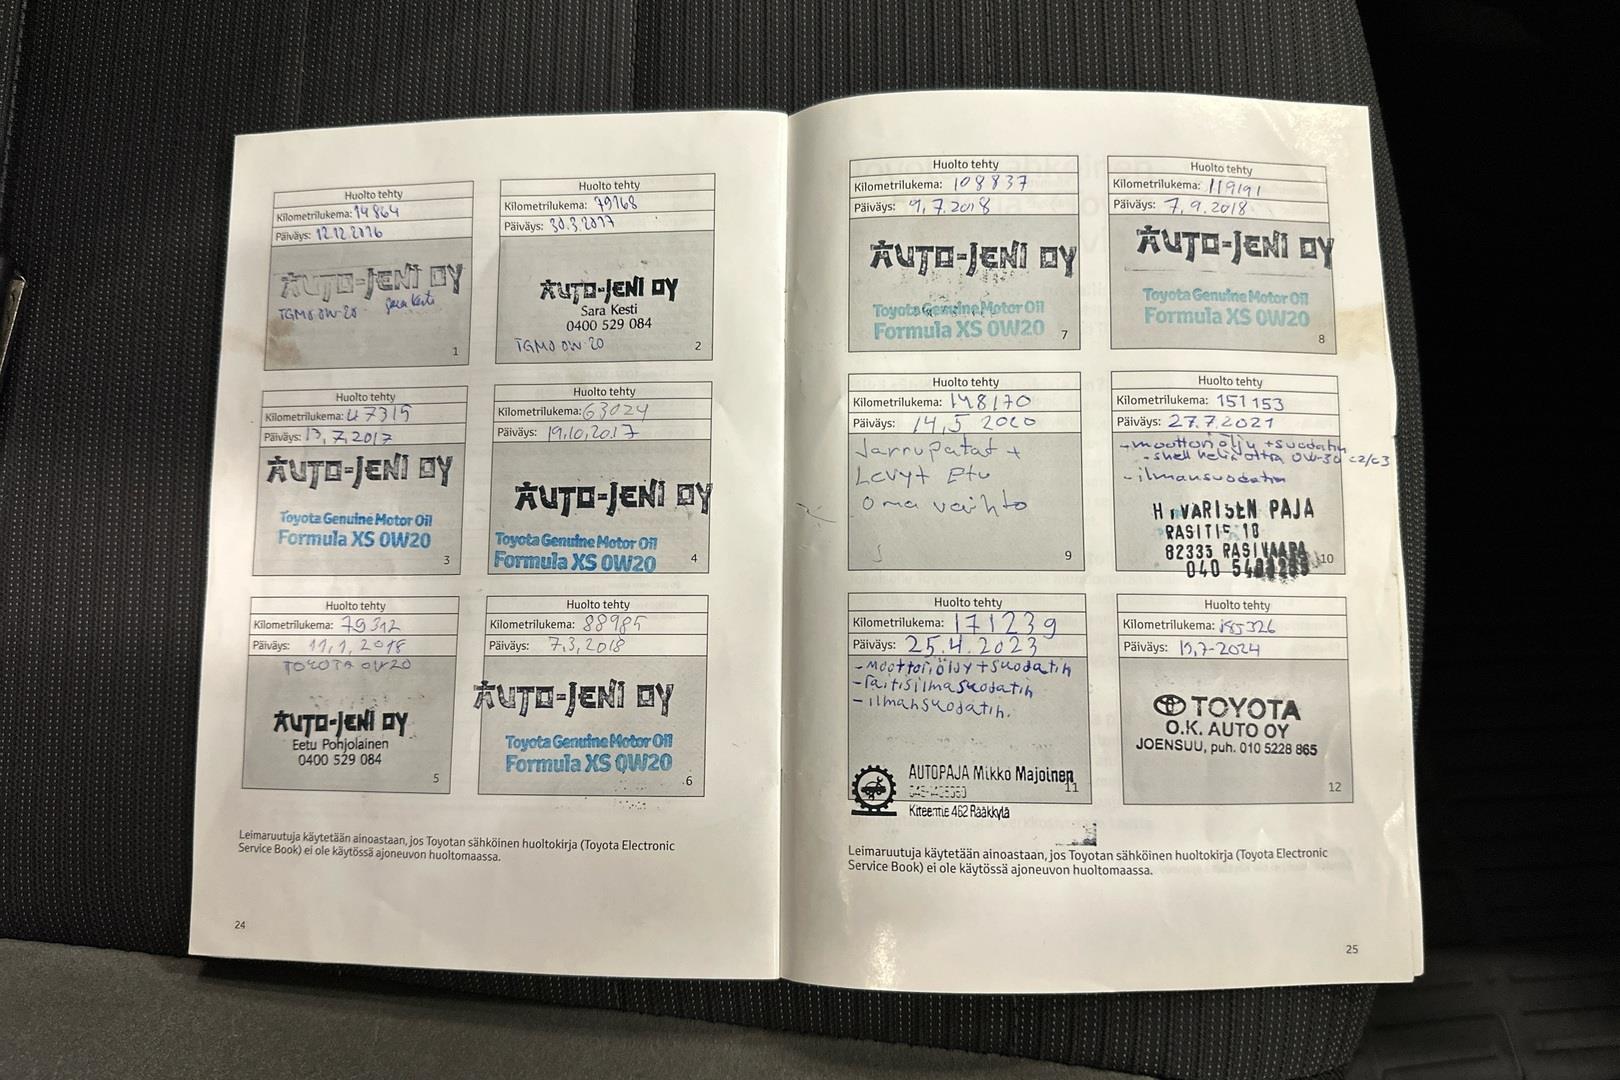 Huolto tehty
Kilometrilukema: 14864
Päiväys: 12.12.2016
AUTO-JENI OY
TGMO 0W-20 Sara Kesti
1
Huolto tehty
Kilometrilukema: 79168
Päiväys: 30.3.2017
AUTO-JENI OY
Sara Kesti
0400 529 084
TGMO 0W 20
2
Huolto tehty
Kilometrilukema: 47315
Päiväys: 13,7,2017
AUTO-JENI OY
Toyota Genuine Motor Oil
Formula XS 0W20
3
Huolto tehty
Kilometrilukema: 63024
Päiväys: 19,10,2017
AUTO-JENI OY
Toyota Genuine Motor Oil
Formula XS 0W20
4
Huolto tehty
Kilometrilukema: 79312
Päiväys: 11,1,2018
TOYOTA 0W20
AUTO-JENI OY
Eetu Pohjolainen
0400 529 084
5
Huolto tehty
Kilometrilukema: 88985
Päiväys: 7,3,2018
AUTO-JENI OY
Toyota Genuine Motor Oil
Formula XS 0W20
6
Leimaruutuja käytetään ainoastaan, jos Toyotan sähköinen huoltokirja (Toyota Electronic
Service Book) ei ole käytössä ajoneuvon huoltomaassa.
24
Huolto tehty
Kilometrilukema: 108837
Päiväys: 9,7.2018
AUTO-JENI OY
Toyota Genuine Motor Oil
Formula XS 0W20
7
Huolto tehty
Kilometrilukema: 119191
Päiväys: 7,9.2018
AUTO-JENI OY
Toyota Genuine Motor Oil
Formula XS 0W20
8
Huolto tehty
Kilometrilukema: 148170
Päiväys: 14,5 2020
Jarrupalat +
Levyt Etu
oma vaihto
9
Huolto tehty
Kilometrilukema: 151153
Päiväys: 27.7.2021
-moottoriöljy +suodatin
-shell helix ultra 0W-30 c2/c3
-ilmansuodatin
HYVÄRISEN PAJA
RASITIE 18
82335 RASIVAARA
040
10
Huolto tehty
Kilometrilukema: 171239
Päiväys: 25.4.2023
-moottoriöljy+suodatin
-raitisilmasuodatin
-ilmansuodatin.
AUTOPAJA Mikko Majoinen
Kiteentie 462 Rääkkylä
11
Huolto tehty
Kilometrilukema: 185326
Päiväys: 15,7-2024
TOYOTA
O.K. AUTO OY
JOENSUU, puh. 010 5228 865
12
Leimaruutuja käytetään ainoastaan, jos Toyotan sähköinen huoltokirja (Toyota Electronic
Service Book) ei ole käytössä ajoneuvon huoltomaassa.
25